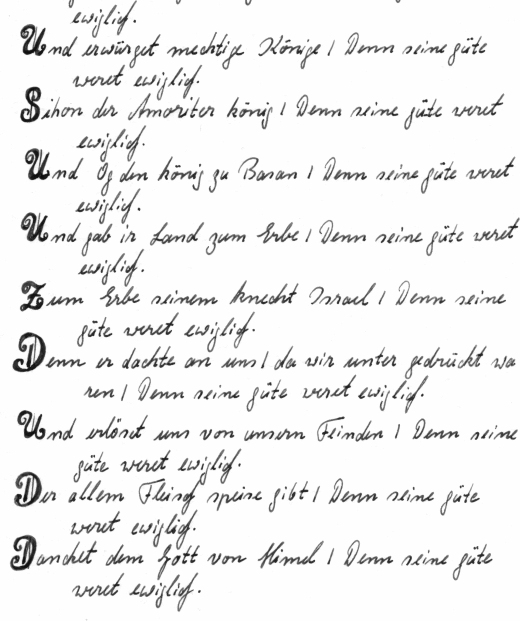 ewiglich.
Und erwürget mechtige Könige / Denn seine güte
weret ewiglich.
Sihon der Amoriter könig / Denn seine güte weret
ewiglich.
Und Og den könig zu Basan / Denn seine güte weret
ewiglich.
Und gab ir Land zum Erbe / Denn seine güte weret
ewiglich.
Zum Erbe seinem knecht Israel / Denn seine
güte weret ewiglich.
Denn er dachte an uns / da wir unter gedrückt wa
ren / Denn seine güte weret ewiglich.
Und erlöset uns von unsern Feinden / Denn seine
güte weret ewiglich.
Der allem Fleisch speise gibt / Denn seine güte
weret ewiglich.
Dancket dem Gott von Himel / Denn seine güte
weret ewiglich.